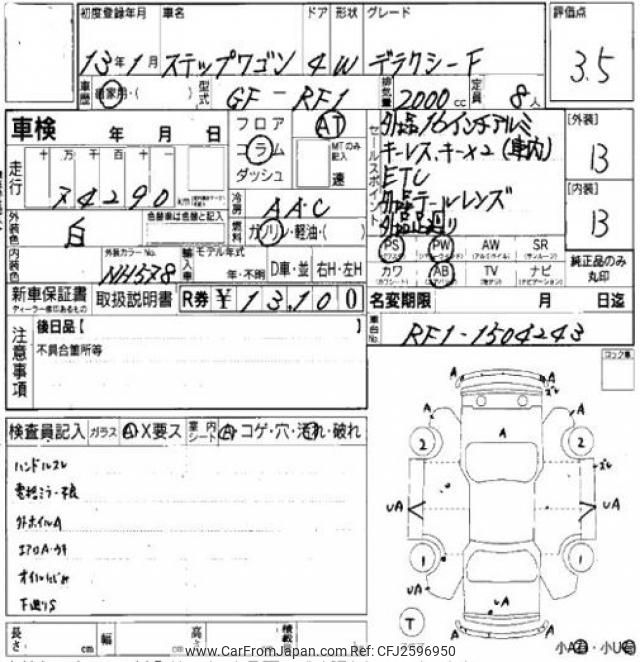 初度登録年月 車名 ドア 形状 グレード 評価点
13年1月 ステップワゴン 4 W デラクシーF 3.5
車歴 自家用・( ) 型式 GF-RF1 排気量 2000cc 定員 8人
車検 年 月 日
フロア コラム ダッシュ
AT MTのみ記入 速
セールスポイント
外品16インチアルミ
キーレス、キー×2(車内)
ETC
外品テールレンズ
[外装] B
[内装] B
走行 十 万 千 百 十 一
74290
外装色 白 色替車は色替と記入
冷房 AAC
燃料 ガソリン・軽油・( )
PS PW AW SR
カワ AB TV ナビ
純正品のみ丸印
内装色 外装カラーNo. NH578
輸入車 モデル年式 年・不明 D車・並 右H・左H
新車保証書 ディーラー捺印あるもの 取扱説明書 R券 ¥13,100
名変期限 月 日迄
車台No. RF1-1504243
注意事項
後日品【 】
不具合箇所等
コック車
検査員記入 ガラス A・X要ス 室内シート A・コゲ・穴・汚れ・破れ
ハンドルスレ
電格ミラー不良
外ホイルA
エアロA・ウキ
オイルにじみ
下廻りS
A A
A A A
2 2
UA UA
1 1
UA
A A
T
小A・小U
長さ cm 幅 cm 高さ cm 積載
www.CarFromJapan.com Ref: CFJ2596950